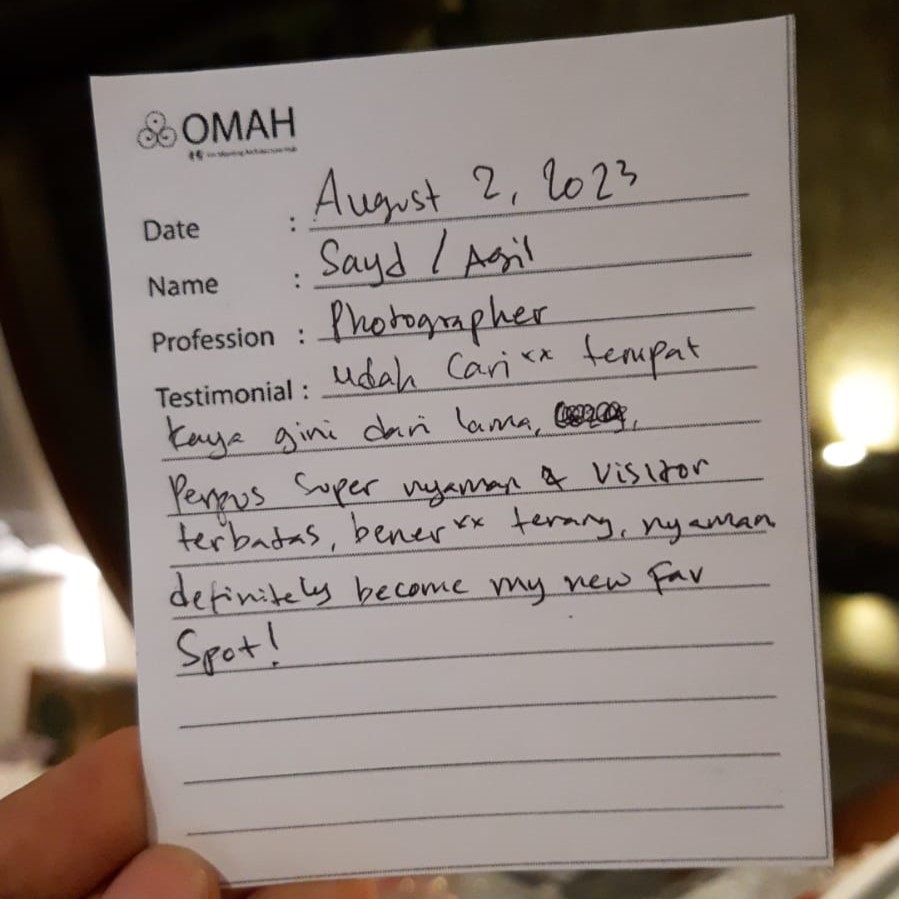 OMAH
Date : August 2, 2023
Name : Sayd / Agil
Profession : Photographer
Testimonial : udah Cari xx tempat
kaya gini dari lama,
Perpus Super nyaman & Visitor
terbatas, bener xx terang, nyaman
definitely become my new Fav
Spot!